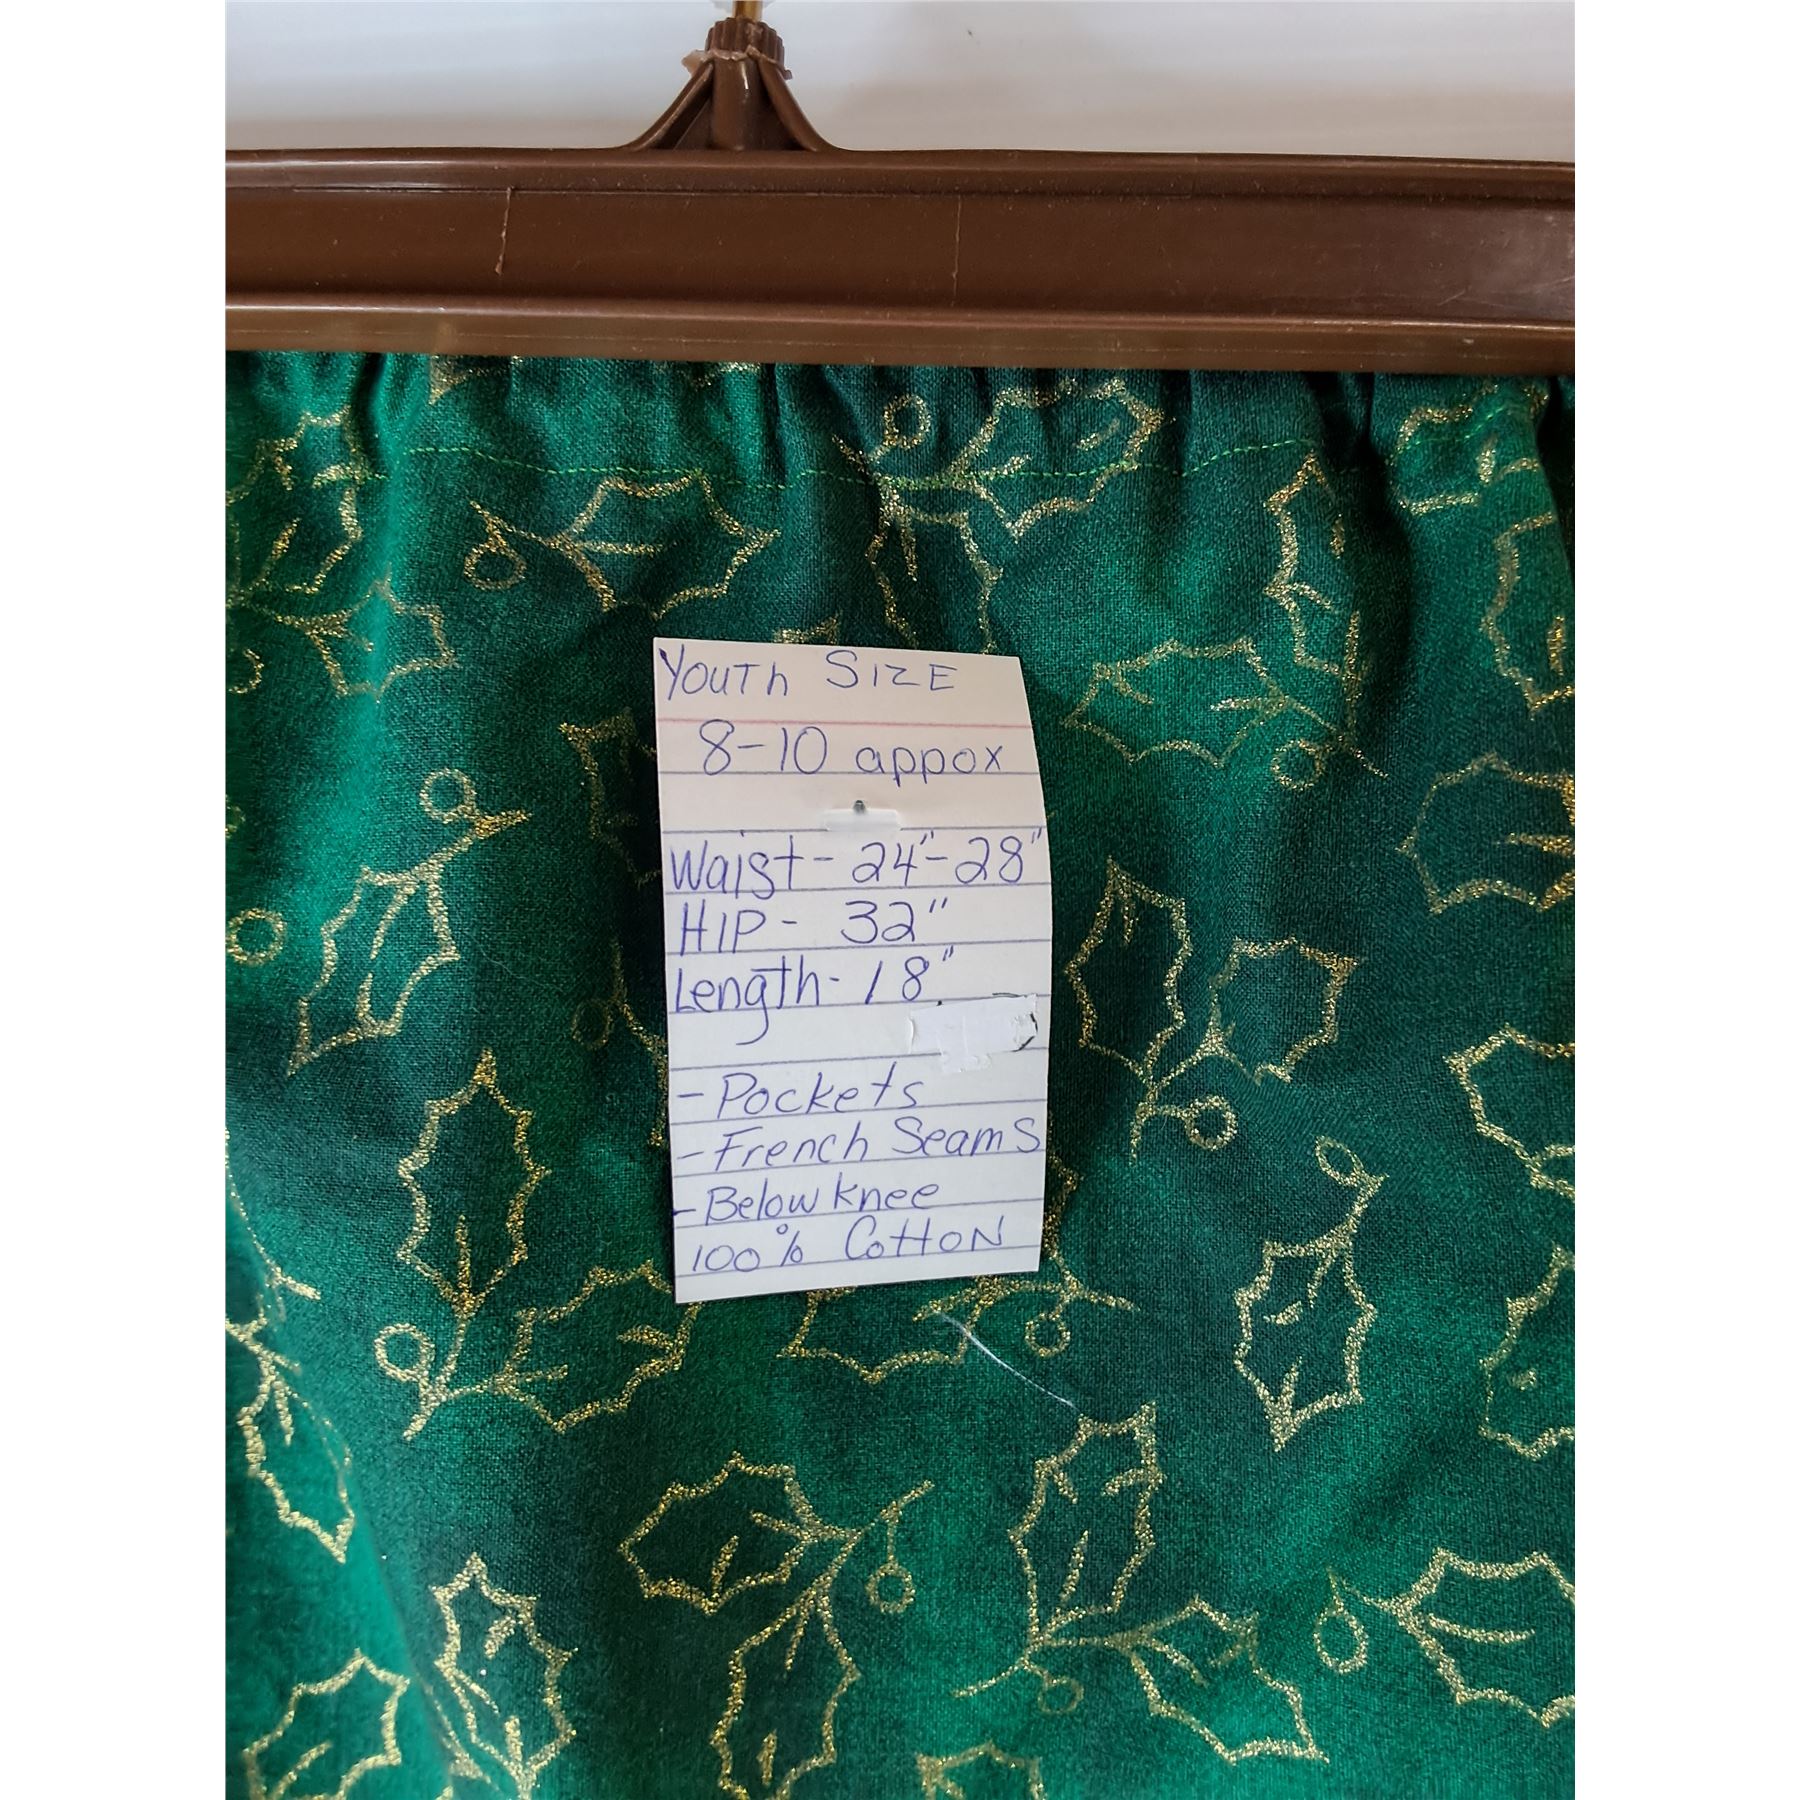 Youth Size
8-10 appox
Waist - 24"-28"
Hip - 32"
Length - 18"
- Pockets
- French Seams
- Below knee
100% Cotton